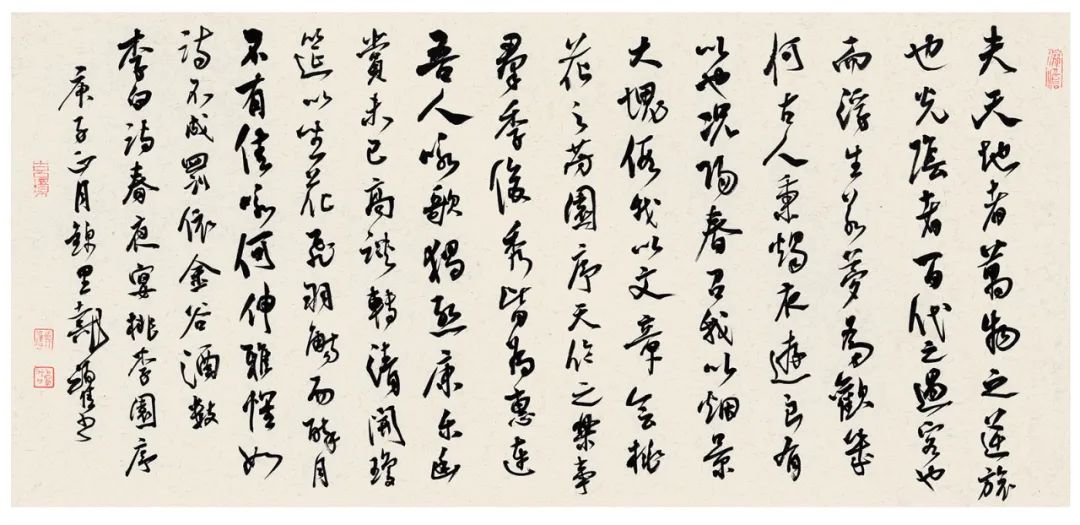 夫天地者萬物之逆旅
也光陰者百代之過客也
而浮生若夢為歡幾
何古人秉燭夜遊良有
以也況陽春召我以烟景
大塊假我以文章會桃
花之芳園序天倫之樂事
羣季俊秀皆為惠連
吾人詠歌獨慙康樂幽
賞未已高談轉清開瓊
筵以坐花飛羽觴而醉月
不有佳詠何伸雅懷如
詩不成罰依金谷酒數
李白詩春夜宴桃李園序
庚子正月錦里書